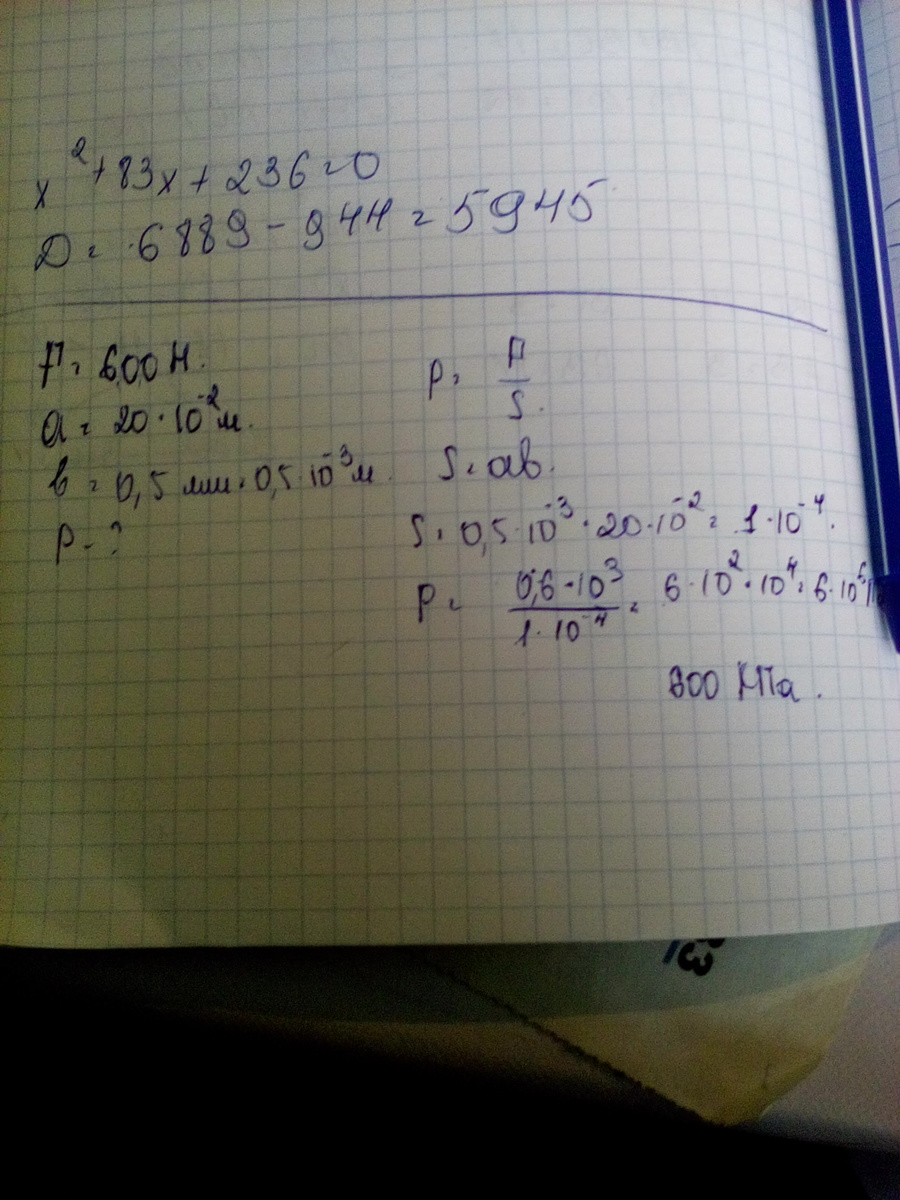 x² + 83x + 236 = 0
D = 6889 - 944 = 5945
F = 600 H.
a = 20·10⁻² м.
b = 0,5 мм = 0,5·10⁻³ м.
P - ?
P = F/S.
S = ab.
S = 0,5·10⁻³ · 20·10⁻² = 1·10⁻⁴.
P = 0,6·10³ / 1·10⁻⁴ = 6·10² · 10⁴ = 6·10⁶